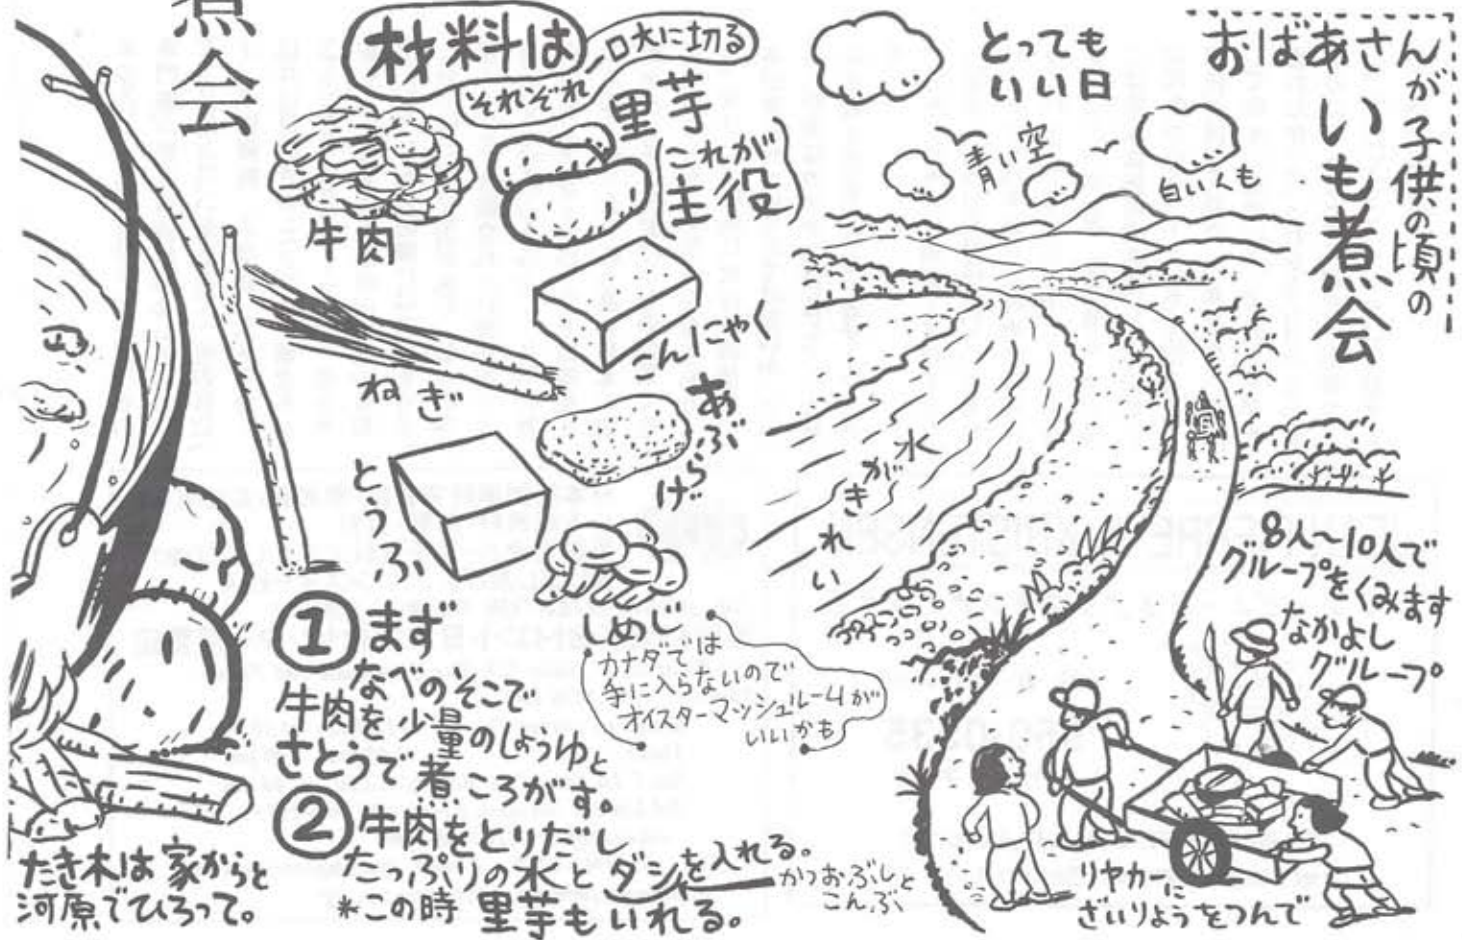 おばあさんが子供の頃の
いも煮会
とっても
いい日
青い空
白いくも
水がきれい
8人〜10人で
グループをくみます
なかよし
グループ
リヤカーに
ざいりょうをつんで
材料は
それぞれ一口大に切る
里芋
(これが
主役)
牛肉
こんにゃく
ねぎ
あぶらげ
とうふ
しめじ
カナダでは
手に入らないので
オイスターマッシュルームが
いいかも
①まず
なべのそこで
牛肉を少量のしょうゆと
さとうで煮ころがす。
②牛肉をとりだし
たっぷりの水とダシを入れる。
かつおぶしと
こんぶ
*この時里芋もいれる。
煮会
たき木は家からと
河原でひろって。